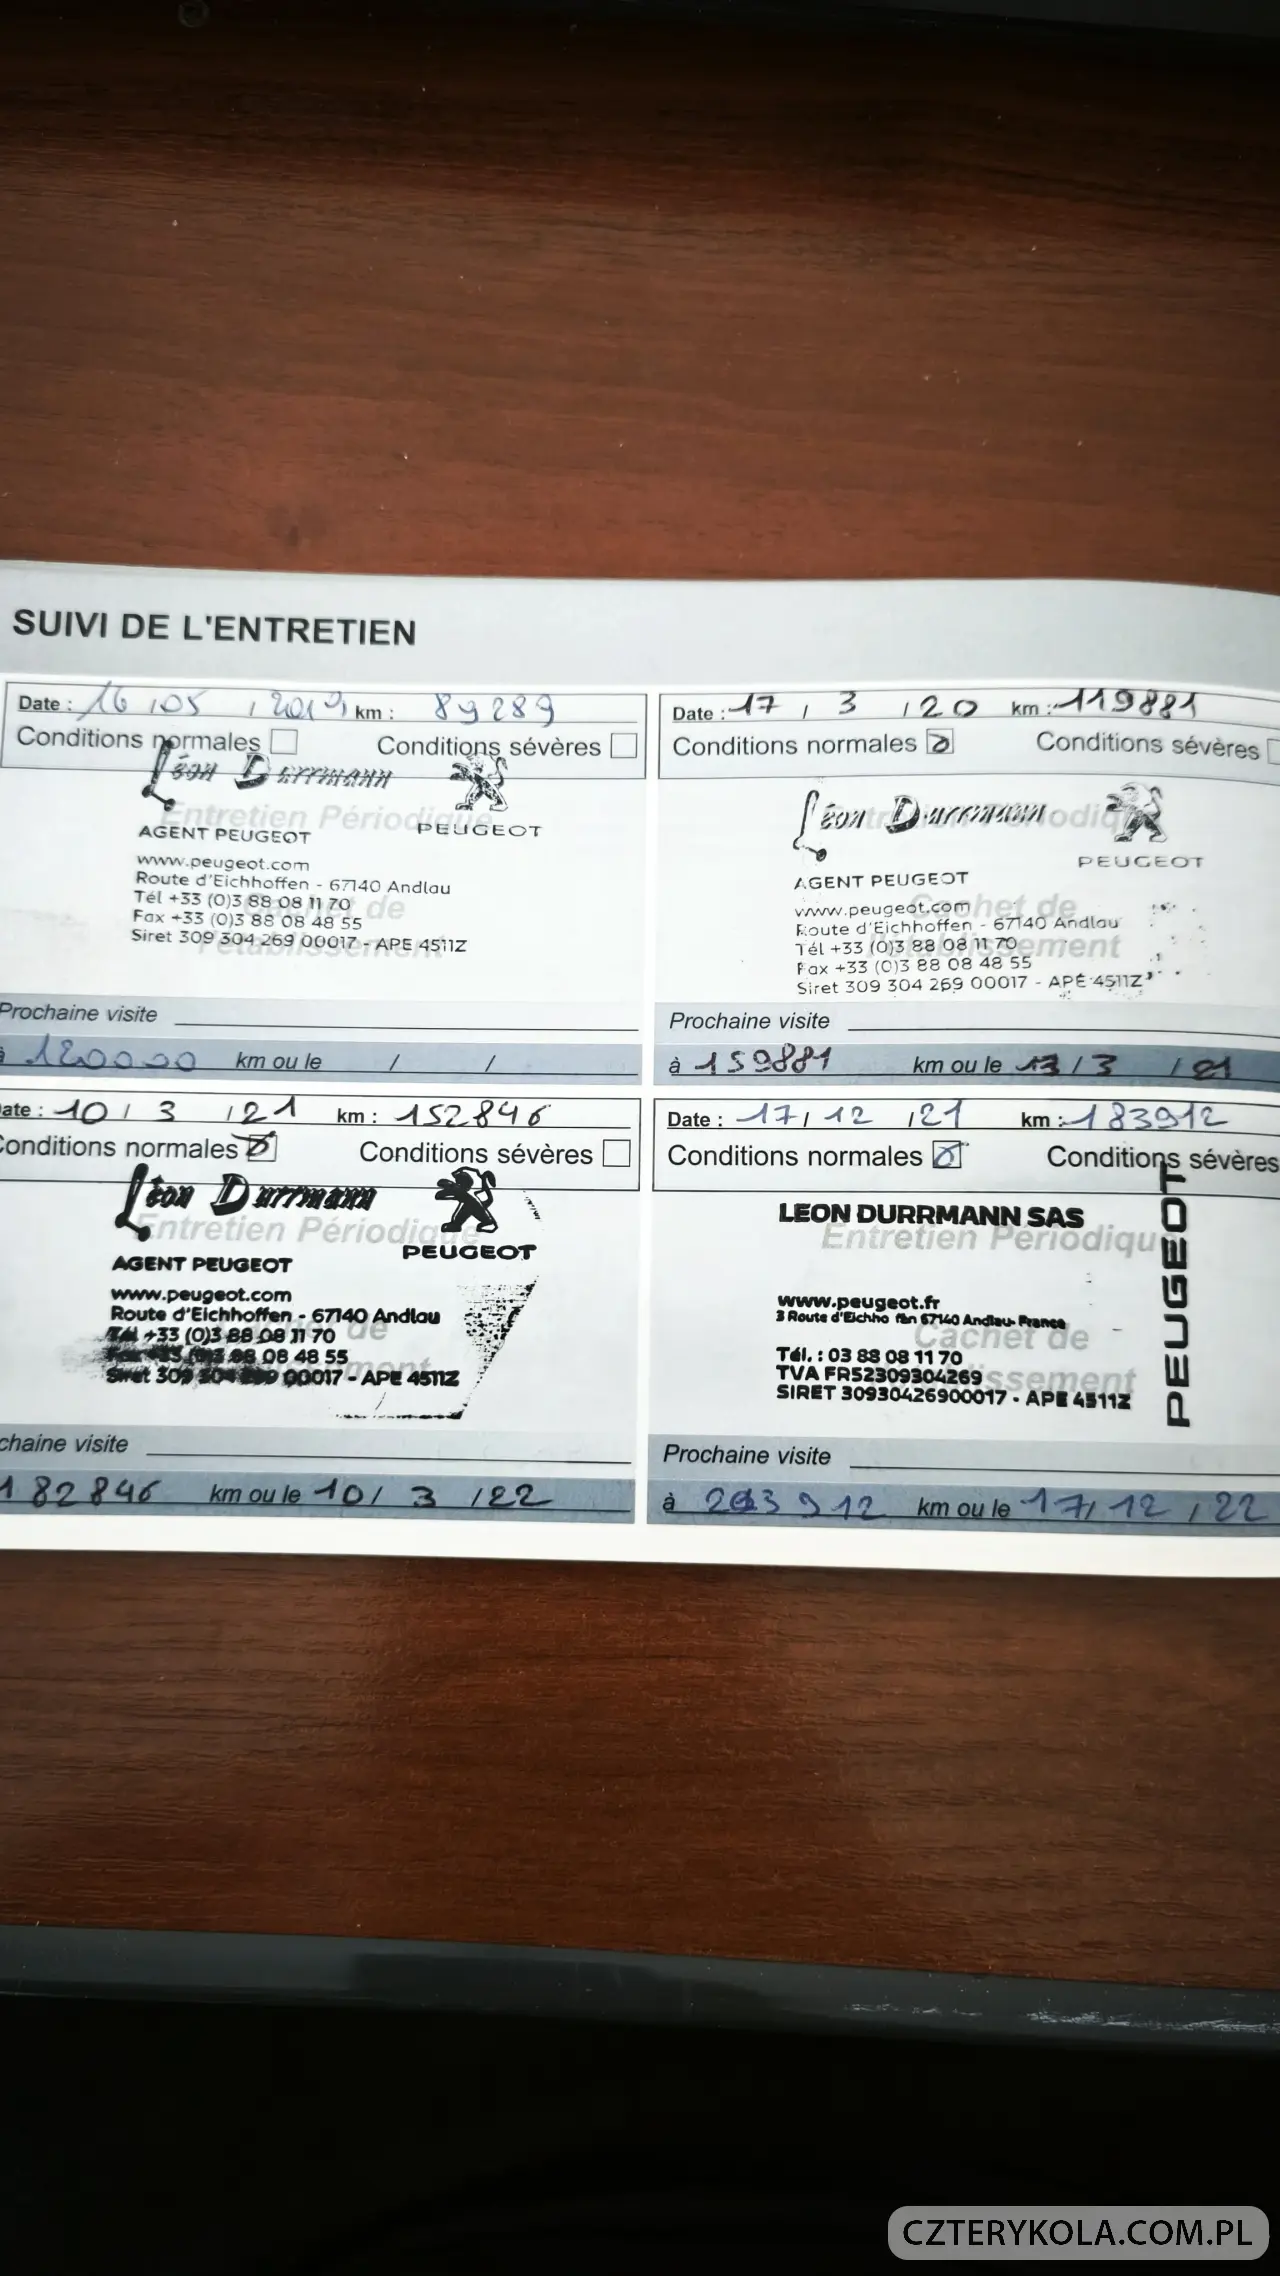 SUIVI DE L'ENTRETIEN
Date : 16 / 05 / 2019 km : 89289
Conditions normales Conditions sévères
Léon Durrmann
Entretien Périodique
AGENT PEUGEOT PEUGEOT
www.peugeot.com
Route d'Eichhoffen - 67140 Andlau
Tél +33 (0)3 88 08 11 70
Cachet de
Fax +33 (0)3 88 08 48 55
Siret 309 304 269 00017 - APE 4511Z
l'établissement
Prochaine visite
à 120000 km ou le / /
Date : 17 / 3 / 20 km : 119881
Conditions normales Conditions sévères
Léon Durrmann
Entretien Périodique
PEUGEOT
AGENT PEUGEOT
www.peugeot.com
Cachet de
Route d'Eichhoffen - 67140 Andlau
Tél +33 (0)3 88 08 11 70
l'établissement
Fax +33 (0)3 88 08 48 55
Siret 309 304 269 00017 - APE 4511Z
Prochaine visite
à 159881 km ou le / 3 / 21
ate : 10 / 3 / 21 km : 152846
Conditions normales Conditions sévères
Léon Durrmann
Entretien Périodique
PEUGEOT
AGENT PEUGEOT
www.peugeot.com
Route d'Eichhoffen - 67140 Andlau
Cachet de
Tél +33 (0)3 88 08 11 70
88 08 48 55
Siret 309 304 269 00017 - APE 4511Z
chaine visite
182846 km ou le 10 / 3 / 22
Date : 17 / 12 / 21 km : 183912
Conditions normales Conditions sévères
LEON DURRMANN SAS
Entretien Périodique
PEUGEOT
www.peugeot.fr
3 Route d'Eichho fen 67140 Andlau- France
Cachet de
Tél. : 03 88 08 11 70
TVA FR52309304269
SIRET 30930426900017 - APE 4511Z
Prochaine visite
à 912 km ou le 17 / 12 / 22
CZTERYKOLA.COM.PL